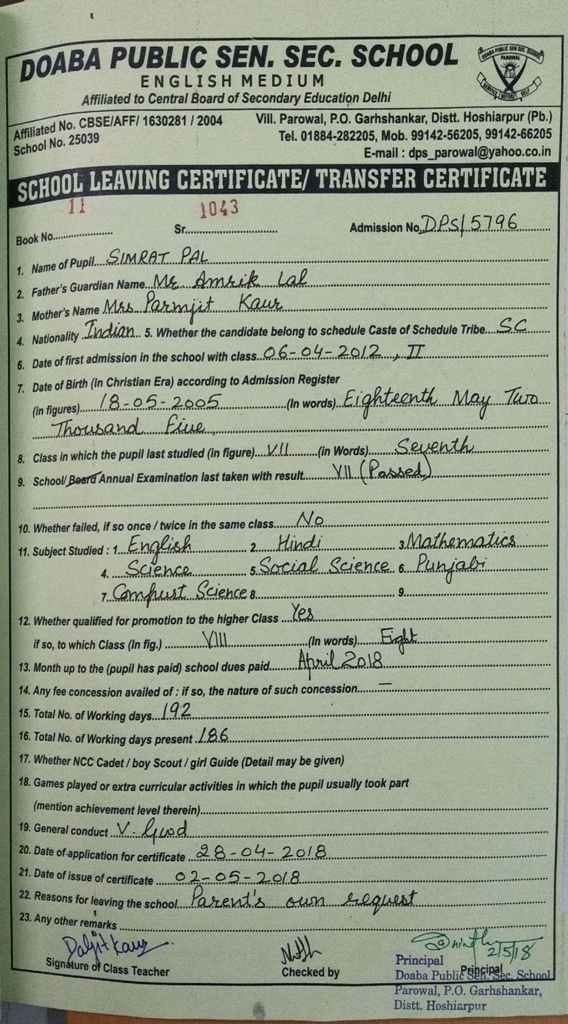 DOABA PUBLIC SEN. SEC. SCHOOL
ENGLISH MEDIUM
Affiliated to Central Board of Secondary Education Delhi
DOABA PUBLIC SEN. SEC. SCHOOL
PAROWAL
Affiliated No. CBSE/AFF/ 1630281 / 2004
School No. 25039
Vill. Parowal, P.O. Garhshankar, Distt. Hoshiarpur (Pb.)
Tel. 01884-282205, Mob. 99142-56205, 99142-66205
E-mail : dps_parowal@yahoo.co.in
SCHOOL LEAVING CERTIFICATE/ TRANSFER CERTIFICATE
Book No. 11 Sr. 1043 Admission No. DPS/5796
1. Name of Pupil. SIMRAT PAL
2. Father's Guardian Name Mr. Amrik Lal
3. Mother's Name Mrs Parmjit Kaur
4. Nationality Indian 5. Whether the candidate belong to schedule Caste of Schedule Tribe. S.C
6. Date of first admission in the school with class 06-04-2012, II
7. Date of Birth (in Christian Era) according to Admission Register
(in figures) 18-05-2005 (In words) Eighteenth May Two
Thousand Five
8. Class in which the pupil last studied (in figure) VII (in Words) Seventh
9. School/Board Annual Examination last taken with result VII (Passed)
10. Whether failed, if so once / twice in the same class No
11. Subject Studied : 1. English 2 Hindi 3 Mathematics
4. Science 5 Social Science 6 Punjabi
7 Comput Science 8 9
12. Whether qualified for promotion to the higher Class Yes
if so, to which Class (In fig.) VIII (In words) Eight
13. Month up to the (pupil has paid) school dues paid April 2018
14. Any fee concession availed of : if so, the nature of such concession —
15. Total No. of Working days 192
16. Total No. of Working days present 186
17. Whether NCC Cadet / boy Scout / girl Guide (Detail may be given)
18. Games played or extra curricular activities in which the pupil usually took part
(mention achievement level therein)
19. General conduct V. Good
20. Date of application for certificate 28-04-2018
21. Date of issue of certificate 02-05-2018
22. Reasons for leaving the school Parent's own request
23. Any other remarks
Daljit Kaur
2/5/18
Signature of Class Teacher Checked by Principal
Principal
Doaba Public Sen. Sec. School
Parowal, P.O. Garhshankar,
Distt. Hoshiarpur